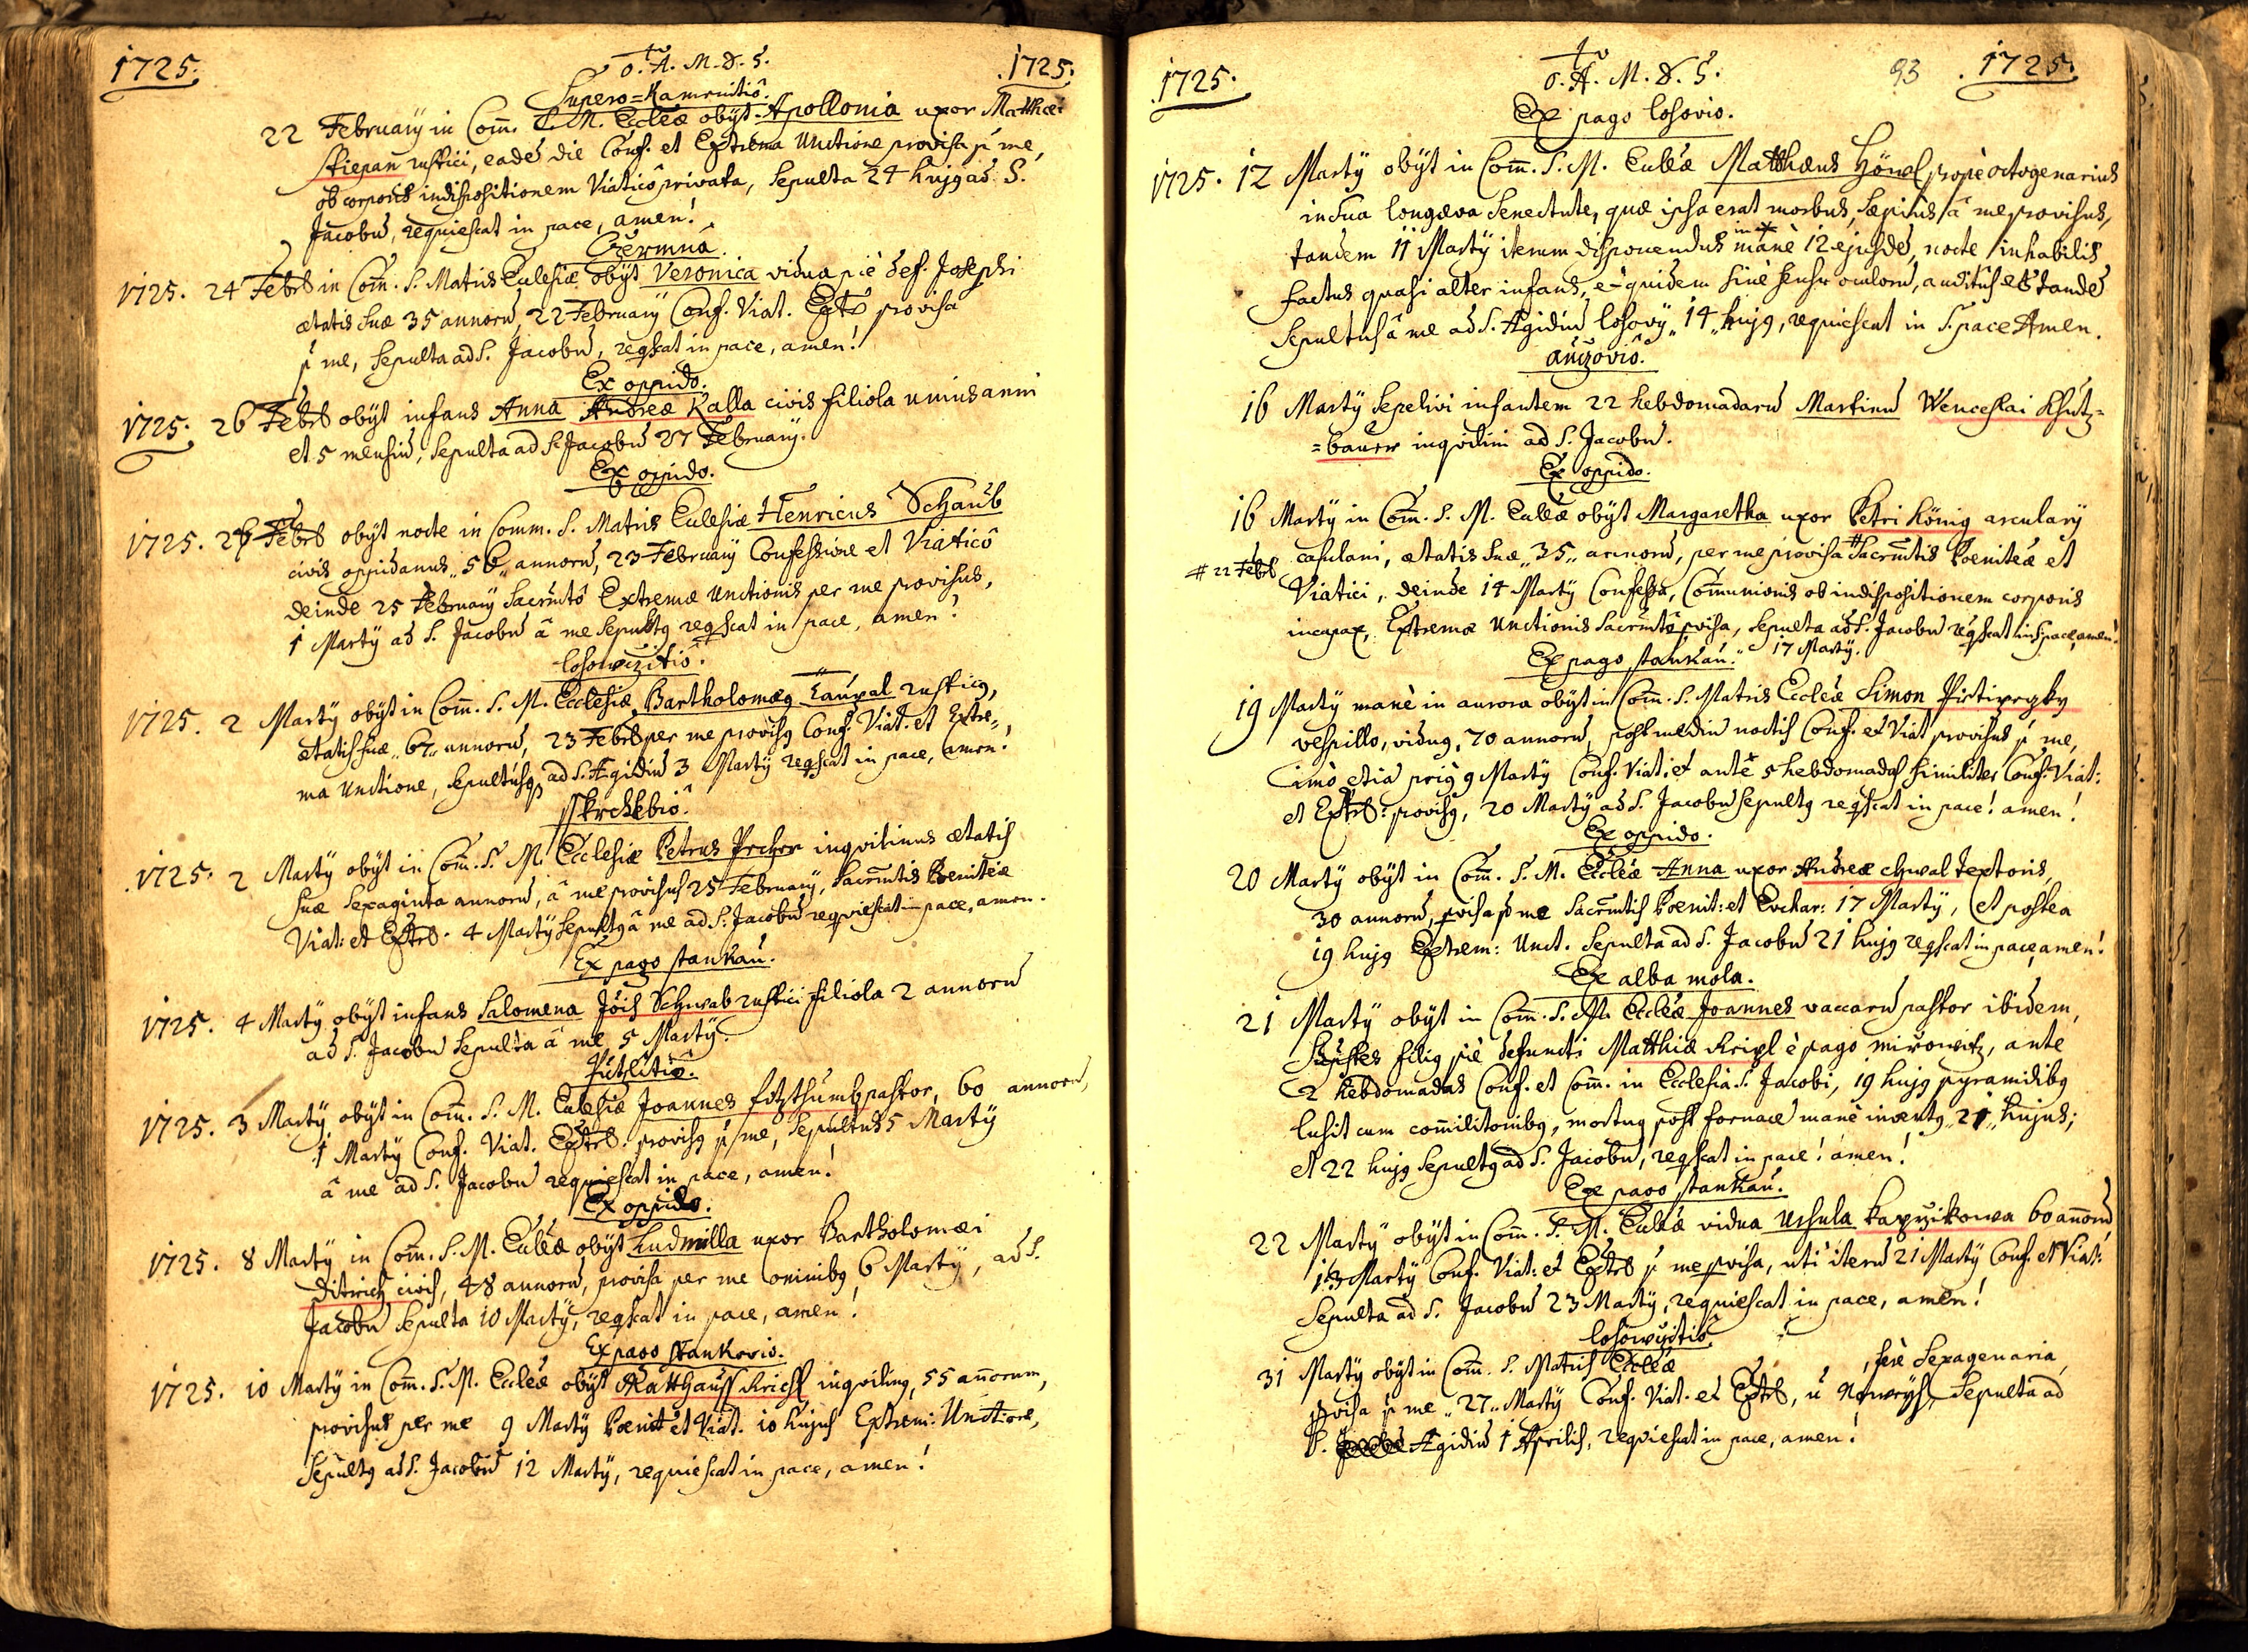 1725.
O. A. M. D. G.
1725.
Supero=Kamenitio.
22 February in Com̄. S. M. Eccleæ obÿt Apollonia uxor Matthæi
Stiepan rustici, eadē die Conf. et Extrema Unctione provisa p me,
ob corporis indispositionem Viaticô privata, sepulta 24 hujꝰ ad S.
Jacobū, requiescat in pace, amen!
Czermna.
1725. 24 Febrs in Com̄. S. Matris Eulesiæ obÿt Veronica vidua piè def. Josephi
ætatis suæ 35 annorū, 22 February Conf. Viat. Extr provisa
p me, sepulta ad S. Jacobū, reqscat in pace, amen!
Ex oppido.
1725. 26 Febrs obÿt infans Anna Andreæ Kalla civis filiola unius anni
et 5 mensiū, sepulta ad S. Jacobū 27 February.
Ex oppido.
1725. 26 Febrs obÿt nocte in Comm. S. Matris Eulesiæ Henricus Schaub
civis oppidanus „56„ annorū, 23 February Confessione et Viaticô
deinde 25 February Sacrm̄tô Extremæ Unctionis per me provisus,
1 Martÿ ad S. Jacobū â me sepultꝰ reqscat in pace, amen!
losowczitio.
1725. 2 Martÿ obÿt in Com̄. S. M. Ecclesiæ Bartholomæꝰ Tauxal rusticꝰ,
ætatis suæ „67„ annorū, 23 Febrs per me provisꝰ Conf. Viat. et Extre=
ma Unctione, sepultusqꝫ ad S. Ægidiū 3 Martÿ reqscat in pace, amen!
Skrchlebio.
1725. 2 Martÿ obÿt in Com̄. S. M. Ecclesiæ Petrus Precher inqvilinus ætatis
suæ sexaginta annorū, â me provisus 25 February, Sacrm̄tis Poenitēæ
Viat: et Extrs. 4 Martÿ sepultꝰ â me ad S. Jacobū reqviescat in pace, amen.
Ex pago stankau.
1725. 4 Martÿ obÿt infans Salomena Jōis Schwab rustici filiola 2 annorū
ad S. Jacobū sepulta â me 5 Martÿ.
Putzlitio.
1725. 3 Martÿ obÿt in Com̄. S. M. Eulesiæ Joannes fitzthumb pastor, 60 annorū,
1 Martÿ Conf. Viat. Extrs. provisꝰ p me, sepultus 5 Martÿ
â me ad S. Jacobū requiescat in pace, amen!
Ex oppido.
1725. 8 Martÿ in Com̄. S. M. Eccleæ obÿt Ludmilla uxor Bartholomæi
Ditrich civis, 48 annorū, provisa per me omnibꝰ 6 Martÿ, ad S.
Jacobū sepulta 10 Martÿ, reqscat in pace, amen!
Ex pago stankovio.
1725. 10 Martÿ in Com̄. S. M. Eccleæ obÿt Matthauss Krichl inqvilinꝰ, 55 an̄orum,
provisus per me 9 Martÿ Poenit et Viat. 10 hujus Extrem: Unctione,
sepultꝰ ad S. Jacobū 12 Martÿ, requiescat in pace, amen!
1725.
O. A. M. D. G.
93
1725.
Ex pago losovio.
1725. 12 Martÿ obÿt in Com̄. S. M. Eccleæ Matthæus Hönel propè octogenarius
in sua longæva senectute, quæ ipsa erat morbus, sæpius â me provisus,
tandem 11 Martÿ iterum disponendus manè 12 ejusdē, nocte inhabilis
factus quasi alter infans, & quidem sinè sensu oculorū, auditus et tandē
sepultus â me ad S. Ægidiū losovÿ „14„ hujꝰ, requiescat in S. pace Amen.
auczovio.
16 Martÿ sepelivi infantem 22 hebdomadarū Martinū Wenceslai Schutz=
=bauer inqvilini ad S. Jacobū.
Ex oppido.
16 Martÿ in Com̄. S. M. Eccleæ obÿt Margaretha uxor Petri König arculary
# 22 Febrs
casulani, ætatis suæ „35„ annorū, per me provisa # Sacrm̄tis Poenitēæ et
Viatici, deinde 14 Martÿ Confessa, Com̄unionis ob indispositionem corporis
incapax, Extremæ Unctionis Sacrm̄tô pvisa, sepulta ad S. Jacobū reqscat in S. pace, amen!
17 Martÿ.
Ex pago stankau.
19 Martÿ manè in aurora obÿt in Com̄. S. Matris Eccleæ Simon
vespillo, viduꝰ, 70 annorū, post mediū noctis Conf. et Viat provisus p me,
imò etiā priꝰ 9 Martÿ Conf. Viat. et antè 5 hebdomadas similiter Conf. Viat:
et Extrs: provisꝰ, 20 Martÿ ad S. Jacobū sepultꝰ reqscat in pace! amen!
Ex oppido.
20 Martÿ obÿt in Com̄. S. M. Eccleæ Anna uxor Andreæ chwal textoris,
30 annorū, pvisa p me Sacrm̄tis Poenit: et Euchar: 17 Martÿ, et postea
19 hujꝰ Extrem: Unct. sepulta ad S. Jacobū 21 hujꝰ reqscat in pace, amen!
Ex alba mola.
21 Martÿ obÿt in Com̄. S. M. Eccleæ Joannes vaccarū pastor ibidem,
filiꝰ piè defuncti Matthiæ Kreipl è pago mirowitz, ante
2 hebdomadas Conf. et Com̄. in Ecclesia S. Jacobi, 19 hujꝰ pyramidibꝰ
lusit cum com̄ilitonibꝰ, mortuꝰ post fornacē manè inventꝰ „21„ hujus;
et 22 hujꝰ sepultꝰ ad S. Jacobū, reqscat in pace! amen!
Ex pago stankau.
22 Martÿ obÿt in Com̄. S. M. Eccleæ vidua Ursula kaprzikowa 60 an̄orū
13 Martÿ Conf. Viat: et Extrs p me pvisa, uti iterū 21 Martÿ Conf. et Viat:
sepulta ad S. Jacobū 23 Martÿ, requiescat in pace, amen!
losowczitio
31 Martÿ obÿt in Com̄. S. Matris Eccleæ , ferè sexagenaria
pvisa p me „27„ Martÿ Conf. Viat. et Extrs, sepulta ad
S. Ægidiū 1 Aprilis, reqviescat in pace, amen!